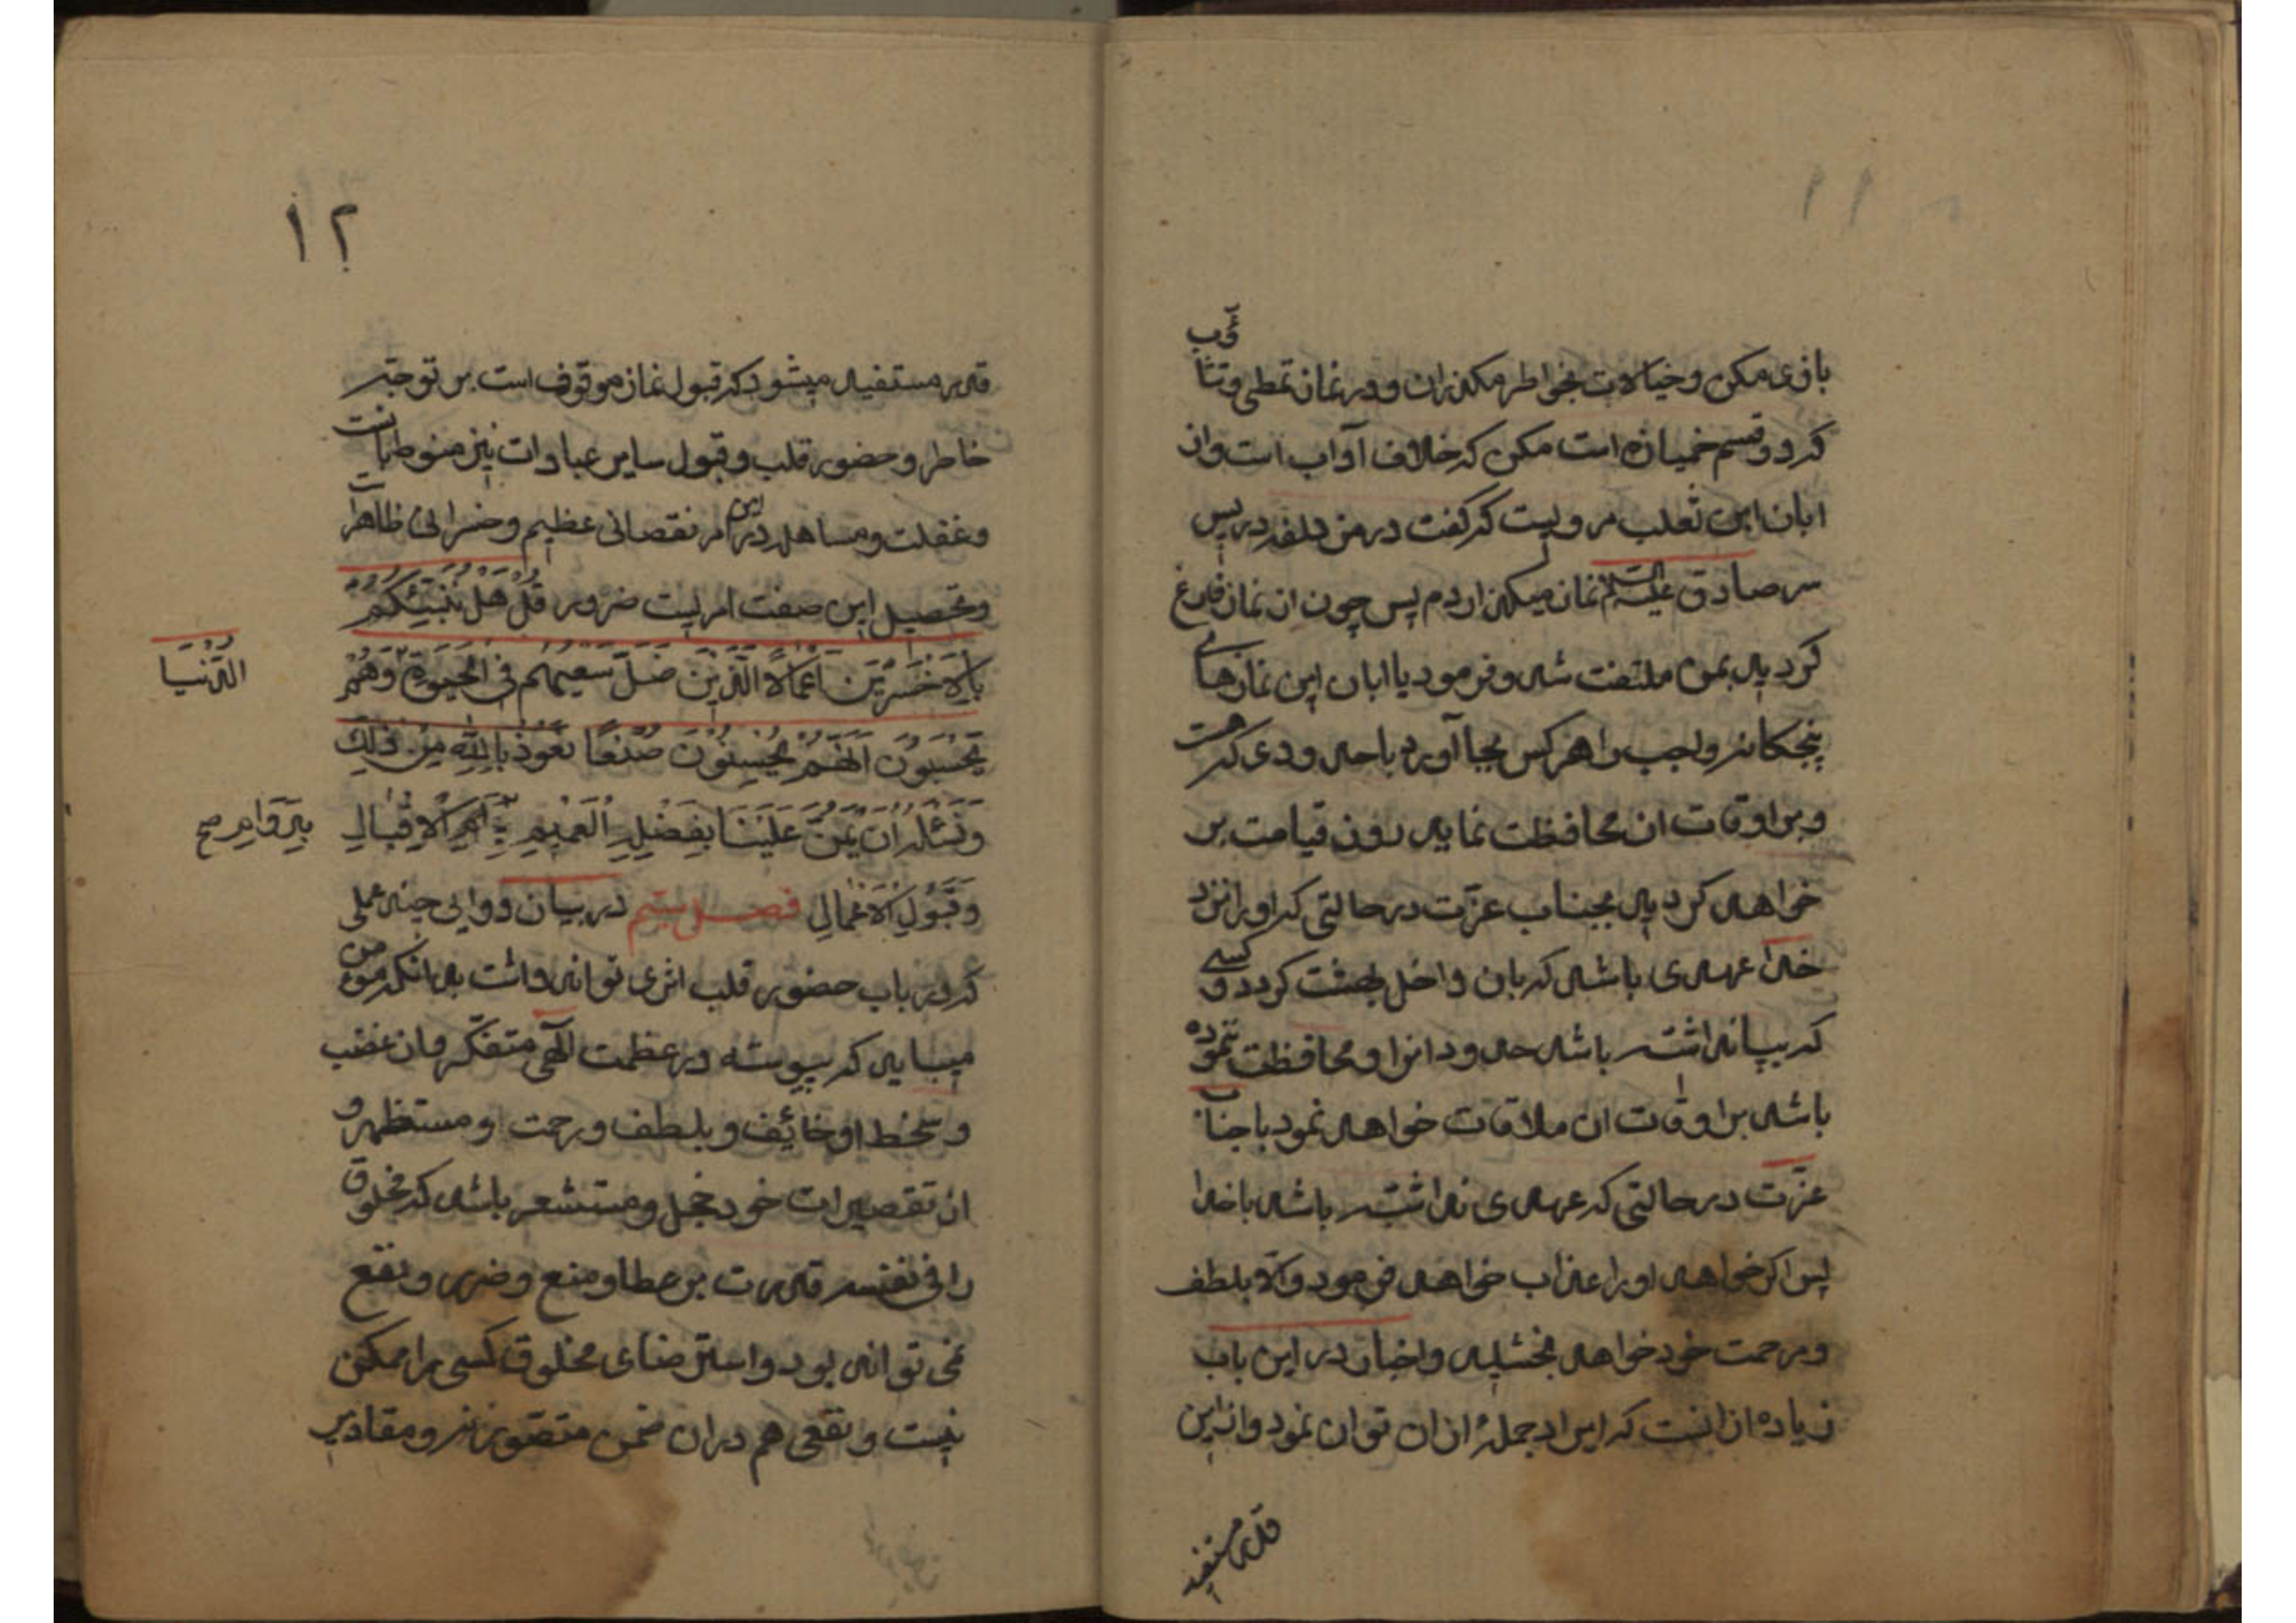 ۱۱
بازی مکن و خیالات بخواطر مکذران و در نماز تمطی و تثاؤب
که دو قسم خمیازه است مکن که خلاف آداب است و از
ابان ابن تغلب مرویست که گفت در مزدلفه در پس
سر صادق علیه السلام نماز میکذاردم پس چون از نماز فارغ
کردید بمن ملتفت شد و فرمود یا ابان این نمازهای
پنجکانه واجب را هر کس بجا آورد با حدودی که هست
و بر اوقات ان محافظت نماید روز قیامت بر
خواهد کردید بجناب عزّت در حالتی که او را نزد
خدا عهدی باشد که بان داخل بهشت کردد و کسی
که بپا نداشته باشد حدود انرا و محافظت ننموده
باشد بر اوقات ان ملاقات خواهد نمود با جناب
عزّت در حالتی که عهدی نداشته باشد با خدا
پس اکر خواهد او را عذاب خواهد فرمود والا بلطف
و مرحمت خود خواهد بخشید و اخبار در این باب
زیاده از انست که ایراد جملهٔ از ان توان نمود و از این
قدر مستفید
۱۲
قدر مستفید میشود که قبول نماز موقوف است بر توجه
خاطر و حضور قلب و قبول سایر عبادات نیز منوط بانست
و غفلت و مساهله در این امر نقصانی عظیم و خسرانی ظاهر است
و تحصیل این صفت امریست ضرور قُلْ هَلْ نُنَبِّئُكُمْ
بِالْاَخْسَرِیْنَ اَعْمَالًا الَّذِیْنَ ضَلَّ سَعْیُهُمْ فِی الْحَیٰوةِ وَهُمْ
الدُّنْیَا
یَحْسَبُوْنَ اَنَّهُمْ یُحْسِنُوْنَ صُنْعًا نَعُوْذُ بِاللّٰهِ مِنْ ذٰلِكَ
وَنَسْئَلُهُ اَنْ یَمُنَّ عَلَیْنَا بِفَضْلِهِ الْعَمِیْمِ الْاِقْبَالِ
صح
وَقَبُوْلِ الْاَعْمَالِ فصل سیم در بیان دوایی چند عملی
که در باب حضور قلب اثری تواند داشت بدانکه مؤمن
میباید که پیوسته در عظمت الٓهی متفکّر و از غضب
و سخط او خائف و بلطف و رحمت او مستظهر و
از تقصیرات خود خجل و مستشعر باشد که مخلوق
را فی نفسه قدرت بر عطا و منع و ضرر و نفع
نمی تواند بود و استرضای مخلوق کسی را ممکن
نیست و نفعی هم در ان ضمن متصّور نه و مقادیر